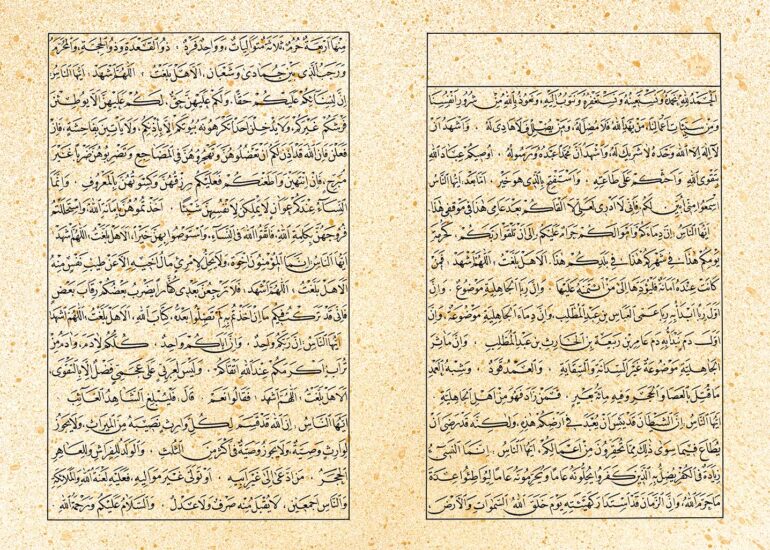 الحمد لله نحمده ونستعينه ونستغفره ونتوب إليه، ونعوذ بالله من شرور أنفسنا
ومن سيئات أعمالنا، من يهد الله فلا مضل له، ومن يضلل فلا هادي له . وأشهد أن
لا إله إلا الله وحده لا شريك له، وأشهد أن محمدا عبده ورسوله . أوصيكم عباد الله
بتقوى الله . وأحثكم على طاعته . وأستفتح بالذي هو خير . أما بعد، أيها الناس
اسمعوا مني أبين لكم، فإني لا أدري لعلي لا ألقاكم بعد عامي هذا في موقفي هذا.
أيها الناس، إن دماءكم وأموالكم حرام عليكم إلى أن تلقوا ربكم . كحرمة
يومكم هذا في شهركم هذا في بلدكم هذا. ألا هل بلغت، اللهم اشهد. فمن
كانت عنده أمانة فليؤدها إلى من ائتمنه عليها . وإن ربا الجاهلية موضوع . وإن
أول ربا أبدأ به ربا عمي العباس بن عبد المطلب . وإن دماء الجاهلية موضوعة، وإن
أول دم نبدأ به دم عامر بن ربيعة بن الحارث بن عبد المطلب . وإن مآثر
الجاهلية موضوعة غير السدانة والسقاية . والعمد قود . وشبه العمد
ما قتل بالعصا والحجر وفيه مائة بعير . فمن زاد فهو من أهل الجاهلية
أيها الناس، إن الشيطان قد يئس أن يعبد في أرضكم هذه، ولكنه قد رضي أن
يطاع فيما سوى ذلك مما تحقرون من أعمالكم. أيها الناس، إنما النسيء
زيادة في الكفر يضل به الذين كفروا يحلونه عاما ويحرمونه عاما ليواطئوا عدة
ما حرم الله، وإن الزمان قد استدار كهيئته يوم خلق الله السموات والأرض،
منها أربعة حرم، ثلاثة متواليات، وواحد فرد : ذو القعدة وذو الحجة، والمحرم
ورجب الذي بين جمادى وشعبان، ألا هل بلغت، اللهم اشهد. أيها الناس
إن لنسائكم عليكم حقا، ولكم عليهن حق، لكم عليهن ألا يوطئن
فرشكم غيركم، ولا يدخلن أحدا تكرهونه بيوتكم إلا بإذنكم، ولا يأتين بفاحشة، فإن
فعلن فإن الله قد أذن لكم أن تعضلوهن وتهجروهن في المضاجع وتضربوهن ضربا غير
مبرح، فإن انتهين وأطعنكم فعليكم رزقهن وكسوتهن بالمعروف . وإنما
النساء عندكم عوان لا يملكن لأنفسهن شيئا . أخذتموهن بأمانة الله، واستحللتم
فروجهن بكلمة الله، فاتقوا الله في النساء، واستوصوا بهن خيرا، ألا هل بلغت، اللهم اشهد.
أيها الناس، إنما المؤمنون إخوة، ولا يحل لامرئ مال أخيه إلا عن طيب نفس منه
ألا هل بلغت، اللهم اشهد . فلا ترجعن بعدي كفارا يضرب بعضكم رقاب بعض
فإني قد تركت فيكم ما إن أخذتم به لم تضلوا بعده، كتاب الله، ألا هل بلغت، اللهم اشهد
أيها الناس، إن ربكم واحد، وإن أباكم واحد . كلكم لآدم، وآدم من
تراب، أكرمكم عند الله أتقاكم . وليس لعربي على عجمي فضل إلا بالتقوى،
ألا هل بلغت، اللهم اشهد . فقالوا نعم . قال، فليبلغ الشاهد الغائب
أيها الناس، إن الله قد قسم لكل وارث نصيبه من الميراث، ولا يجوز
لوارث وصية، ولا يجوز وصية في أكثر من الثلث . والولد للفراش وللعاهر
الحجر . من ادعى إلى غير أبيه . أو تولى غير مواليه، فعليه لعنة الله والملائكة
والناس أجمعين، لا يقبل منه صرف ولا عدل . والسلام عليكم ورحمة الله .